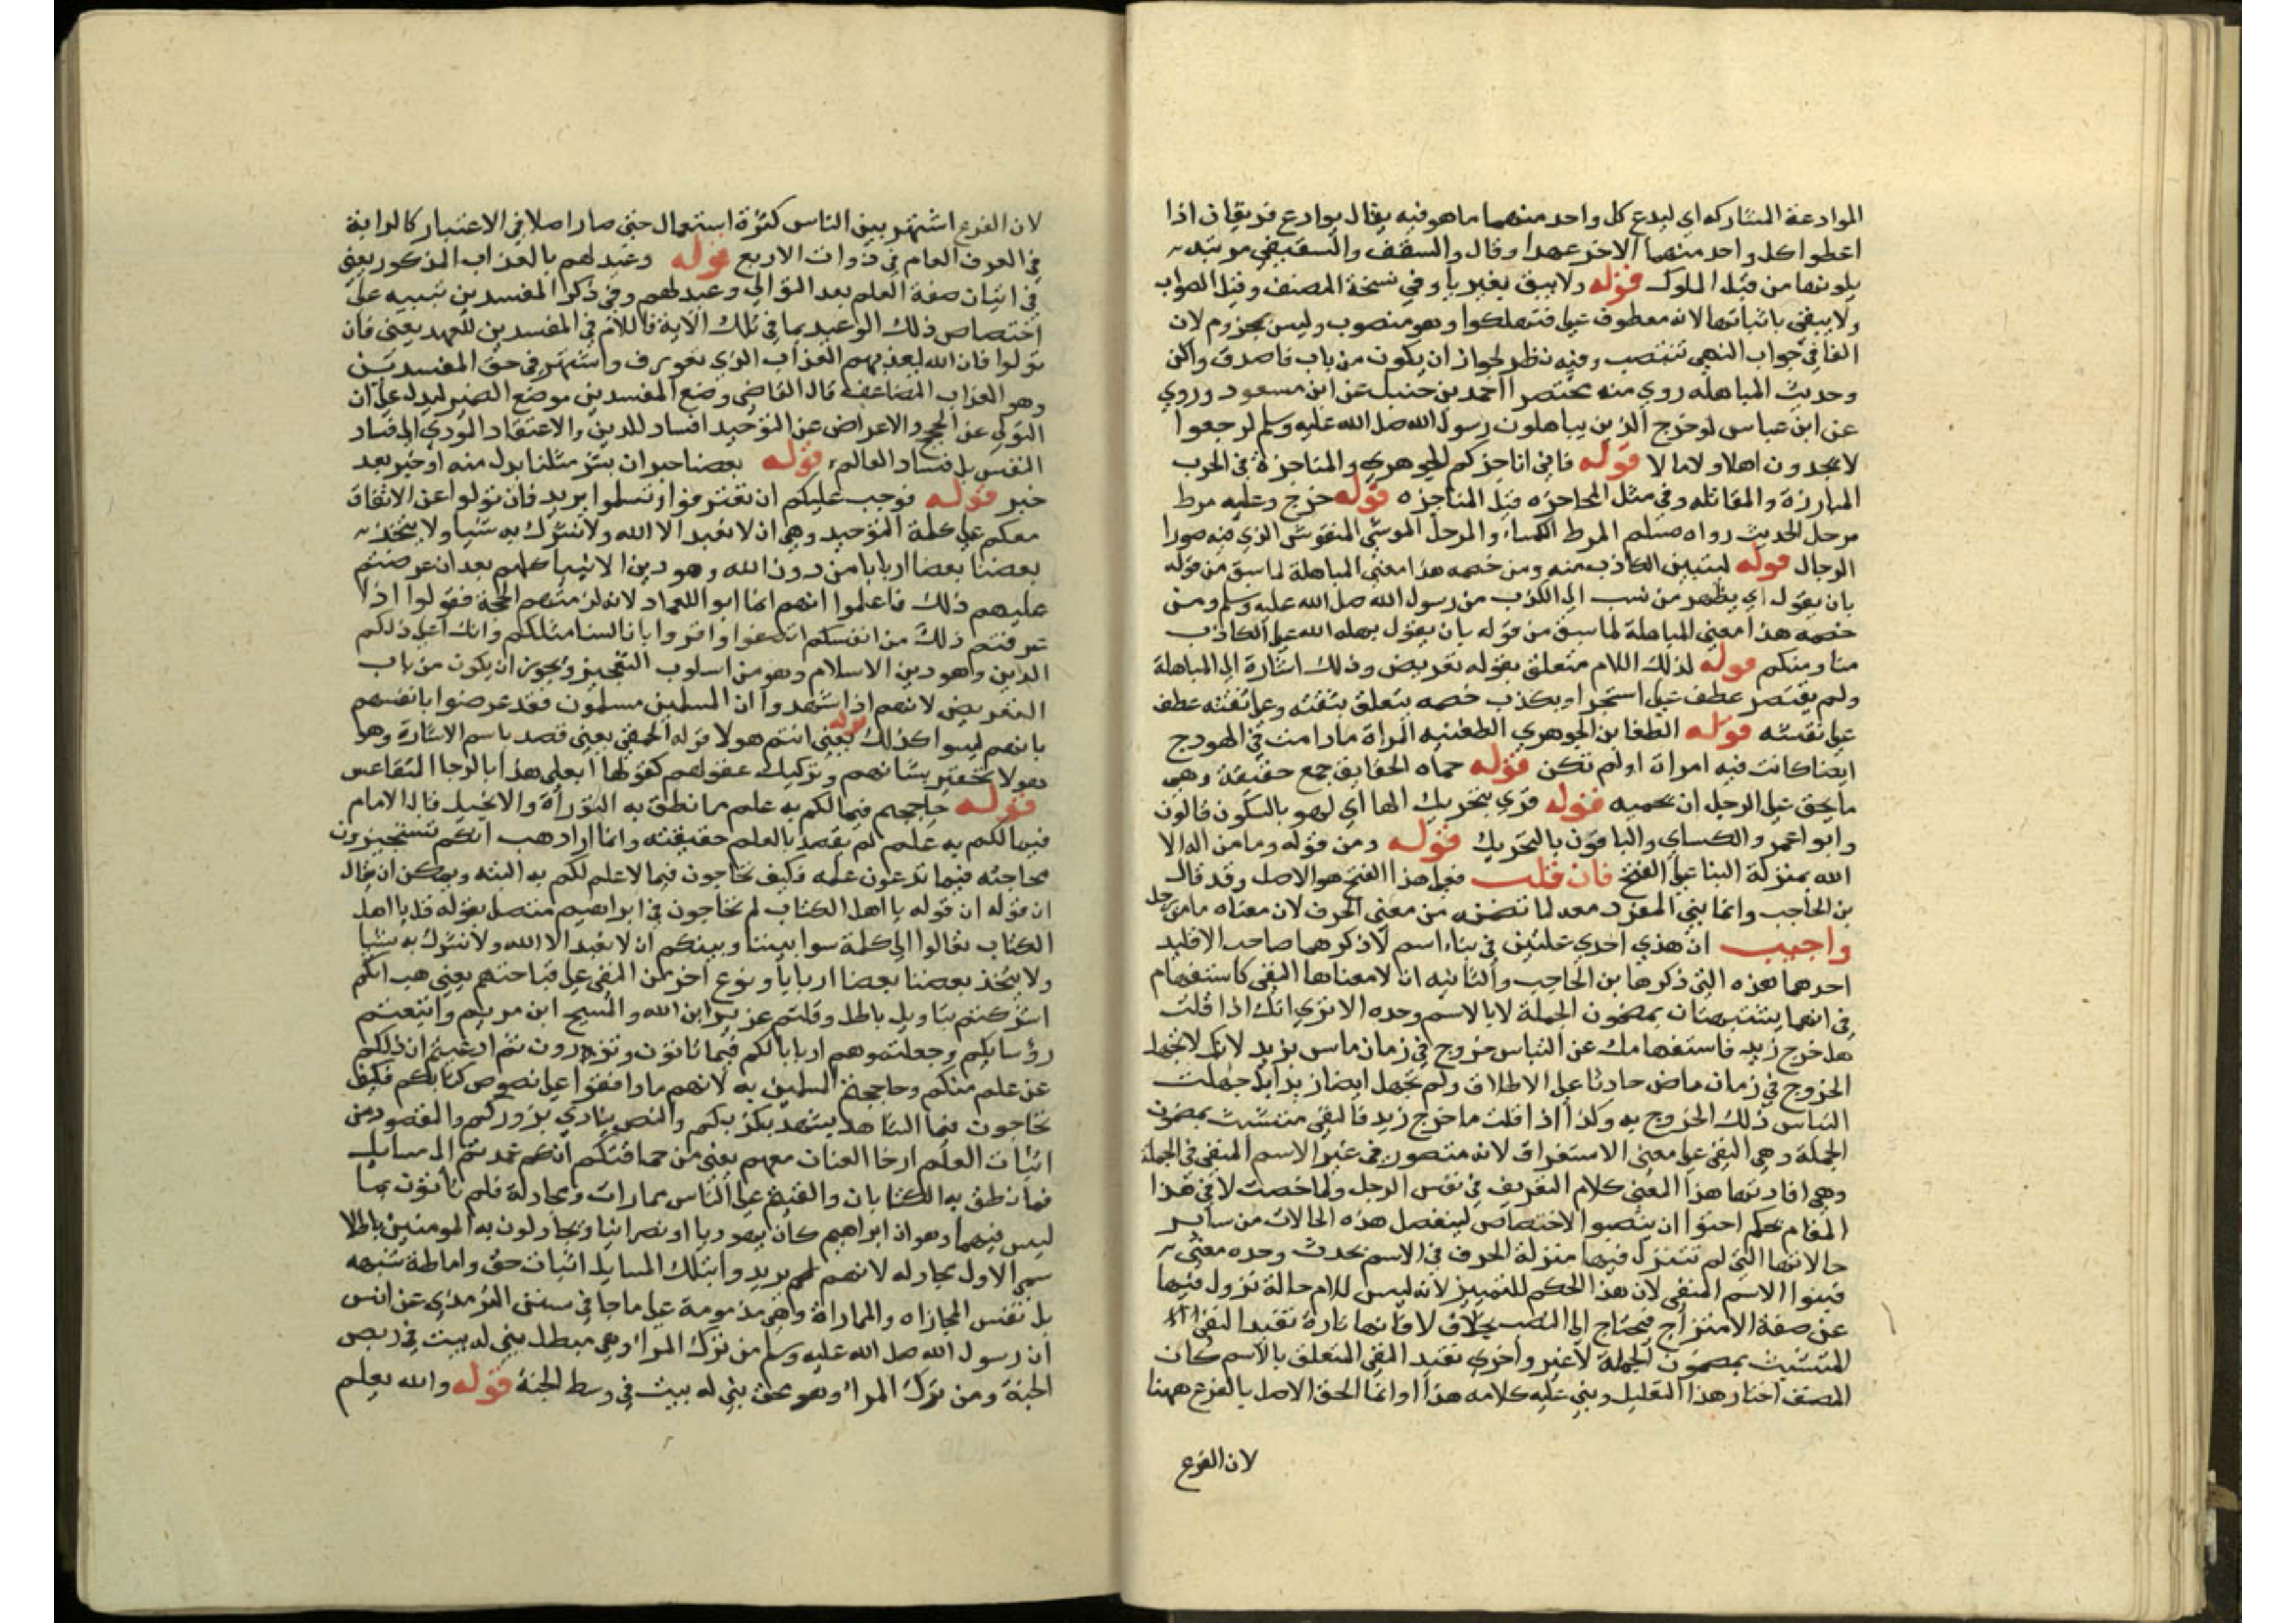 الموادعة المتاركه اي ليدع كل واحد منهما ما هو فيه يقال يوادع فريقان اذا
اعطوا كل واحد منهما الاخر عهدا وقال والسقف والسقيفي مرتبه
يلونها من قبل الملوك قوله ولا يبق بغير يا وفي نسخة المصنف وقبل الصواب
ولا يبقي باثباتها لانه معطوف على فتهلكوا وهو منصوب وليس بمجزوم لان
الفا في جواب النهي تنتصب وفيه نظر لجواز ان يكون من باب فاصدق واكن
وحديث المباهله روي منه مختصرا احمد بن حنبل عن ابن مسعود وروي
عن ابن عباس لو خرج الذين يباهلون رسول الله صلى الله عليه وسلم لرجعوا
لا يجدون اهلا ولا مالا قوله فاني اناجزكم الجوهري والمناجزة في الحرب
المبارزة والمقاتله وفي مثل المحاجزه قبل المناجزه قوله خرج وعليه مرط
مرحل الحديث رواه مسلم المرط الكساء والمرحل الموشي المنقوش الذي فيه صورا
الرحال قوله ليتبين الكاذب منه ومن خصمه هذا معني المباهلة لما سبق من قوله
بان يقول اي يظهر من نسب الى الكذب من رسول الله صلى الله عليه وسلم ومن
خصمه هذا معني المباهلة لما سبق من قوله بان يقول بهله الله على الكاذب
منا ومنكم قوله لذلك اللام متعلق بقوله تعريض وذلك اشارة الى المباهلة
ولم يقتصر عطف على استجرا وبكذب خصمه يتعلق بثقته وعلى ثقته عطف
على نفسه قوله الظعاين الجوهري الظعينه المراة ما دامت في الهودج
ايضا كانت فيه امراة او لم تكن قوله حماه الحقايق جمع حقيقة وهي
ما يحق على الرجل ان يحميه قوله قري بتحريك الها اي لهو بالسكون قالون
وابو عمر والكساي والباقون بالتحريك قوله ومن قوله وما من اله الا
الله بمنزلة البنا على الفتح فان قلت فعلى هذا الفتح هو الاصل وقد قال
بن الحاجب وانما بني المفرد معه لما تضمنه من معني الحرف لان معناه ما من رجل
واجيب ان هذي احدي علتين في بناء اسم لا ذكرهما صاحب الاقليد
احدهما هذه التي ذكرها بن الحاجب والثانيه ان لا معناها النفي كاستفهام
في انهما يتشبثان بمضمون الجملة لا بالاسم وحده الا تري انك اذا قلت
هل خرج زيد فاستفهامك عن التباس خروج في زمان ماض بزيد لانك لا تجهل
الخروج في زمان ماض حادثا على الاطلاق ولم تجهل ايضا زيدا بل جهلت
التباس ذلك الخروج به وكذا اذا قلت ما خرج زيد فالنفي متشبث بمضمون
الجملة وهي النفي على معني الاستغراق لانه متصور في غير الاسم المنفي في الجملة
وهي افادتها هذا المعني كلام التعريف في نفس الرجل ولما خصت لا في هذا
المقام بحكم احبوا ان ينصبوا الاختصاص لينفصل هذه الحالات من ساير
حالاتها التي لم تتنزل فيها منزلة الحرف في الاسم يحدث وحده معني
فبنوا الاسم المنفي لان هذا الحكم للتمييز لانه ليس للام حالة تزول فيها
عن صفة الامتزاج فتحتاج الى النصب بخلاف لا فانها تارة تفيد النفي
المتشبث بمضمون الجملة لا غير واخري تفيد النفي المتعلق بالاسم كان
المصنف اختار هذا التعليل وبني عليه كلامه هذا وانما الحق الاصل بالفرع ههنا
لان الفرع
لان الفرع اشتهر بين الناس كثرة استعمال حتى صار اصلا في الاعتبار كالدابة
في العرف العام في ذوات الاربع قوله وعيد لهم بالعذاب المذكور يعني
في اتيان صفة العلم بعد التوالي وعيد لهم وفي ذكر المفسدين تنبيه على
اختصاص ذلك الوعيد بما في تلك الاية فاللام في المفسدين للعهد يعني فان
تولوا فان الله يعذبهم العذاب الذي تعورف واشتهر في حق المفسدين
وهو العذاب المضاعف قال القاضي وضع المفسدين موضع الضمير ليدل على ان
التولي عن الحجج والاعراض عن التوحيد افساد للدين والاعتقاد المودي الى فساد
النفس بل فساد العالم قوله بعضنا خبر ان بشر مثلنا بدل منه او خبر بعد
خبر قوله فوجب عليكم ان تعترفوا وتسلموا يريد فان تولوا عن الاتفاق
معكم على كلمة التوحيد وهي ان لا نعبد الا الله ولا نشرك به شيا ولا يتخذ
بعضنا بعضا اربابا من دون الله وهو دين الانبيا كلهم بعد ان عرضتم
عليهم ذلك فاعلموا انهم انما ابوا للعناد لانه لزمتهم الحجة فقولوا اذا
عرفتم ذلك من انفسكم انصفوا واقروا بانا لسنا مثلكم وانك على ذلكم
الدين وهو دين الاسلام وهو من اسلوب التعجيز ويجوز ان يكون من باب
التعريض لانهم اذا شهدوا ان المسلمين مسلمون فقد عرضوا بانفسهم
بانهم ليسوا كذلك قوله يعني انتم هولا قوله الحمقي يعني قصد باسم الاشارة وهو
هولا تحقير بشانهم وتركيك عقولهم كقولها ابعلي هذا بالرحا المتقاعس
قوله حاججتم فيما لكم به علم مما نطق به التوراة والانجيل قال الامام
فيما لكم به علم لم يقصد بالعلم حقيقته وانما اراد هب انكم تستجيزون
محاجته فيما تدعون علمه فكيف تحاجون فيما لا علم لكم به البته ويمكن ان يقال
ان قوله ان قوله يا اهل الكتاب لم تحاجون في ابراهيم متصل بقوله قل يا اهل
الكتاب تعالوا الى كلمة سوا بيننا وبينكم ان لا نعبد الا الله ولا نشرك به شيا
ولا يتخذ بعضنا بعضا اربابا ونوع اخر من النعي على قباحتهم يعني هب انكم
اشركتم بتاويل باطل وقلتم عزير ابن الله والمسيح ابن مريم واتبعتم
رؤسايكم وجعلتموهم اربابا لكم فيما تاتون وتذرون ثم ادعيتم ان ذلكم
عن علم منكم وحاججتم المسلمين به لانهم ما وافقوا على نصوص كتابكم فكيف
تحاجون فيما الشاهد يشهد بكذبكم والنص ينادي بزوركم والمقصود من
اثبات العلم ارخا العنان معهم يعني من حماقتكم انكم عمدتم الى مسايل
فما نطق به الكتابان والقيتم على الناس ممارات ومجادلة فلم تاتون بما
ليس فيهما وهو ان ابراهيم كان يهوديا او نصرانيا وتجادلون به المومنين باطلا
سمي الاول مجادله لانهم لم يريدوا بتلك المسايل اثبات حق واماطة شبهه
بل نفس المجاراه والمماراة وهي مذمومة على ما جا في سنن الترمذي عن انس
ان رسول الله صلى الله عليه وسلم من ترك المراء وهي مبطل بني له بيت في ربض
الجنة ومن ترك المراء وهو محق بني له بيت في وسط الجنة قوله والله يعلم